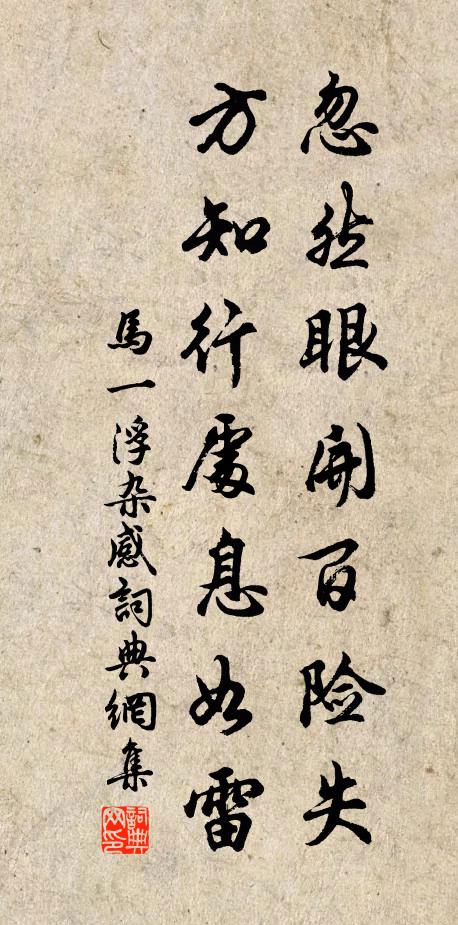 忽然眼開百险失
方知行處息如雷
馬一浮杂感詞典網集
詞典网印